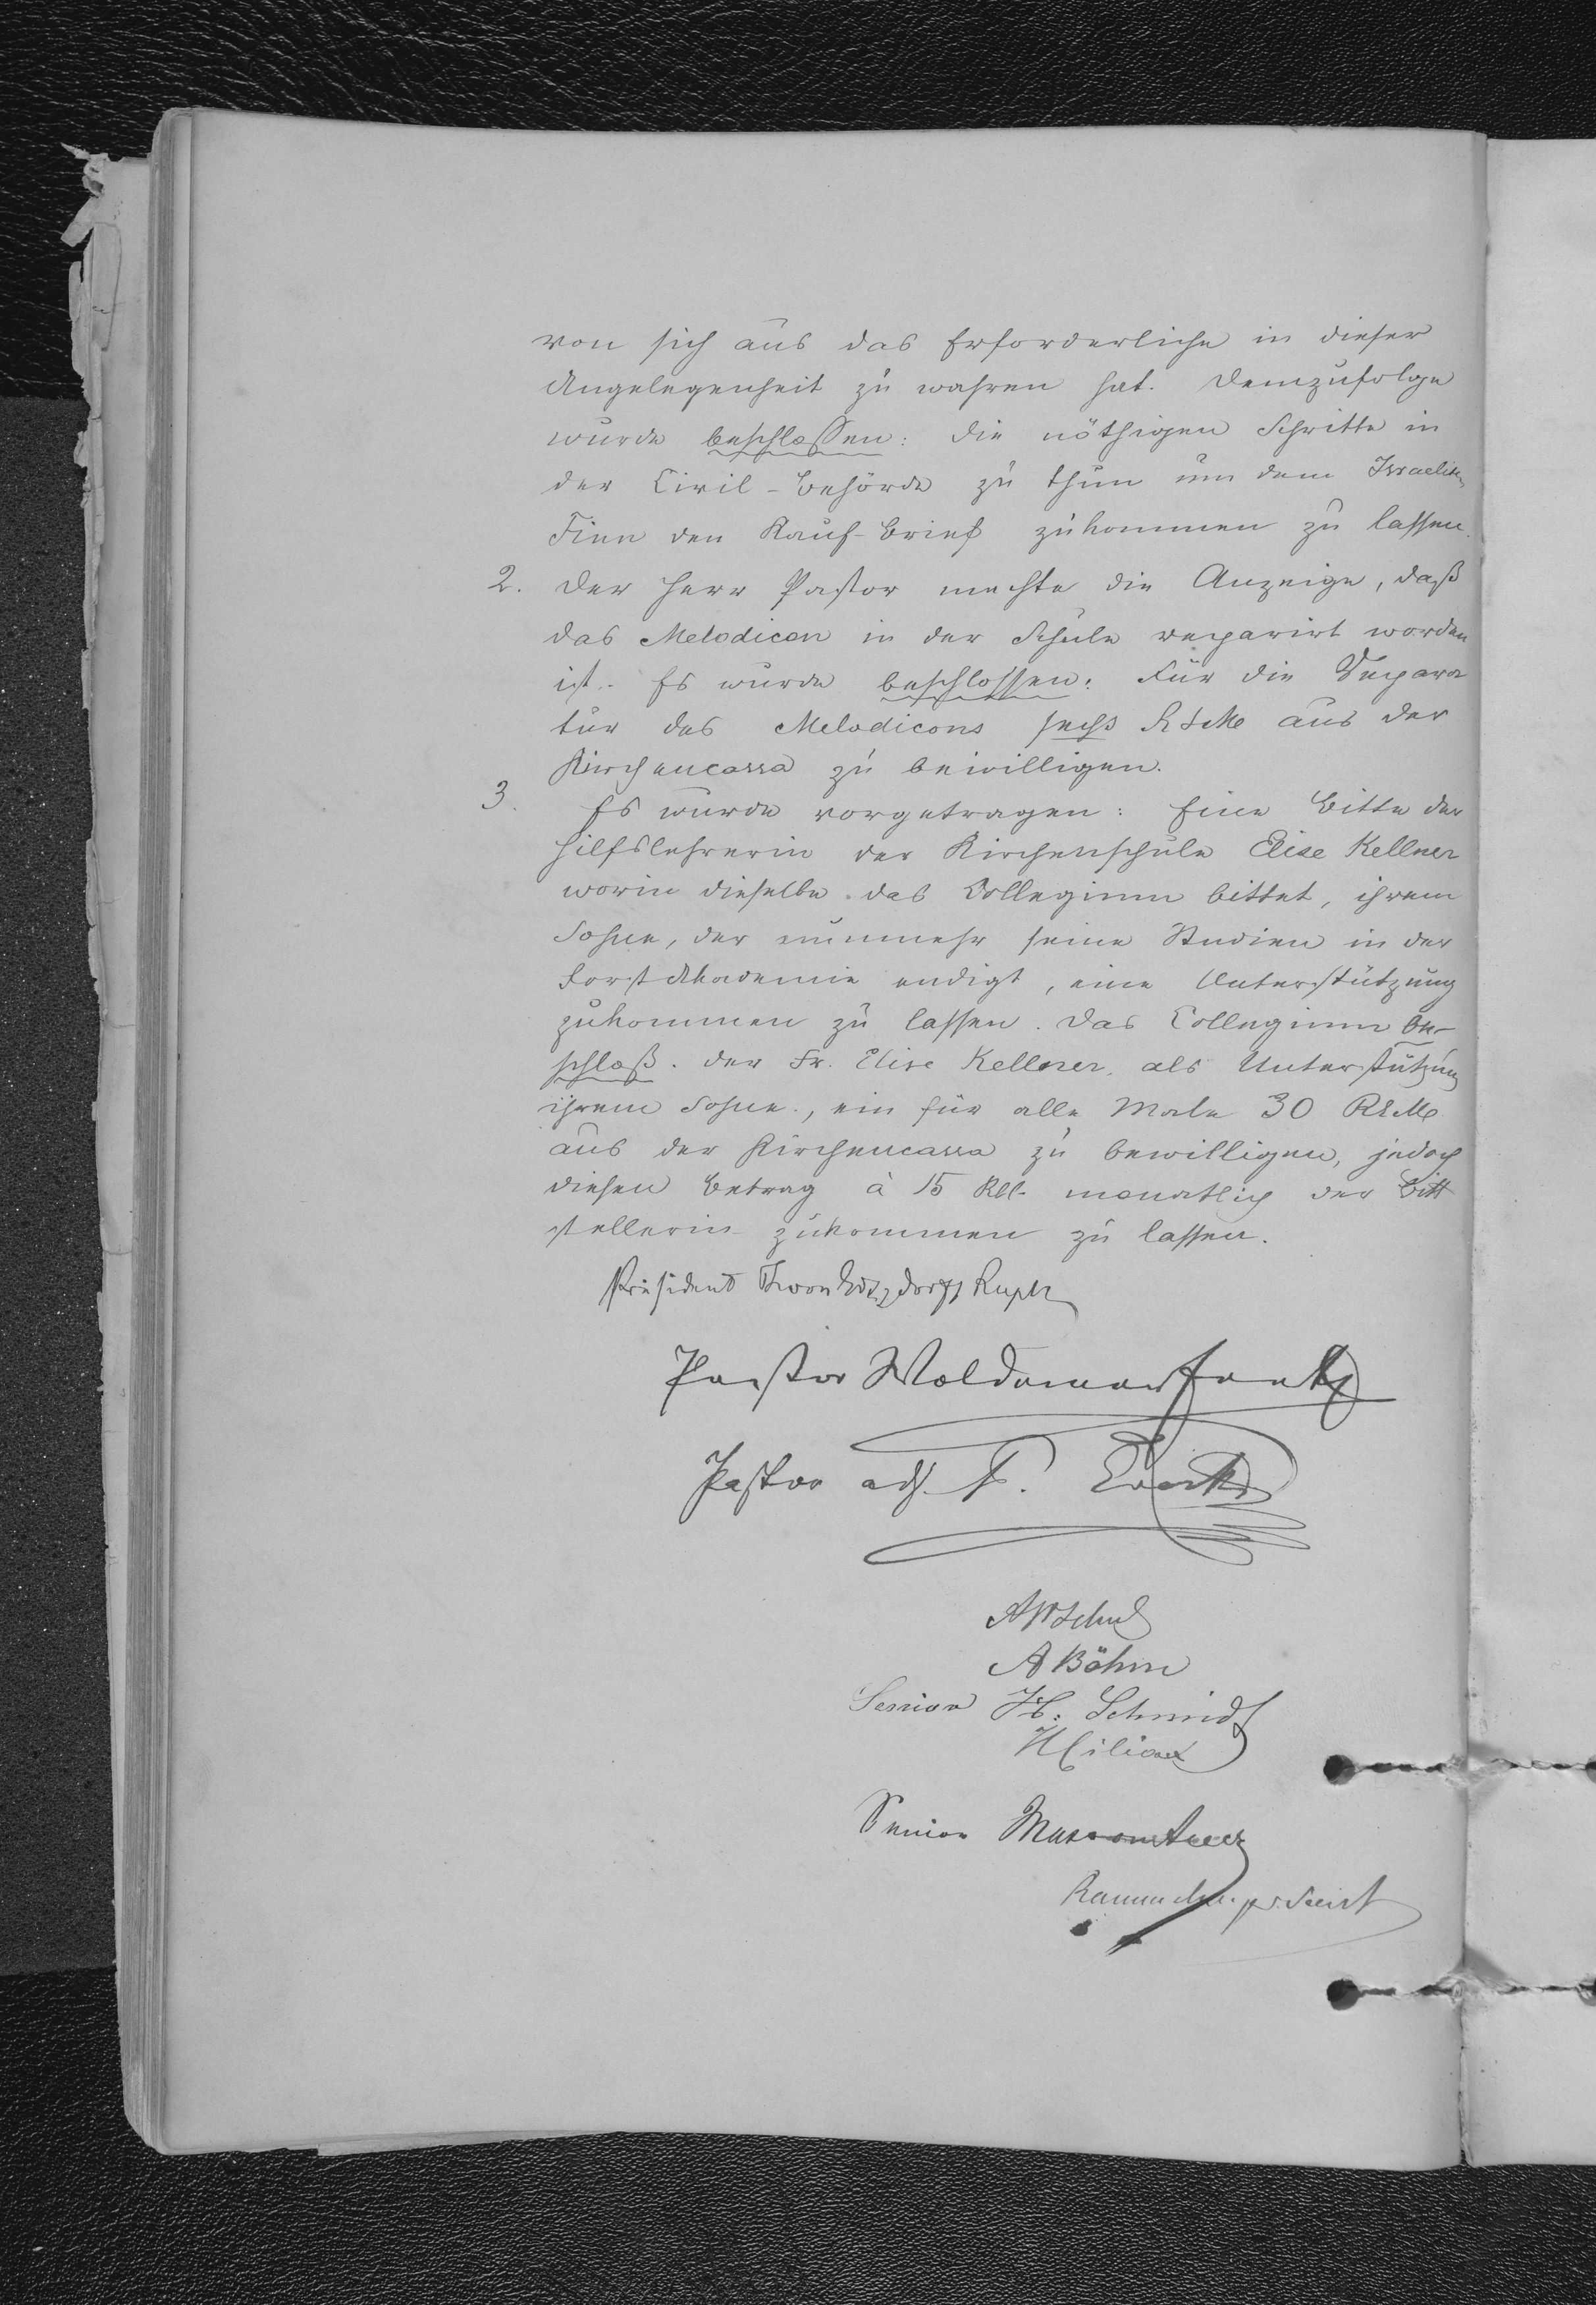 von sich aus das Erforderliche in dieser
Angelegenheit zu wahren hat. Demzufolge
wurde beschlossen: die nöthigen Schritte in
der Civil-Behörde zu thun um dem Israeliten
Finn den Kauf-Brief zukommen zu lassen.
2. Der Herr Pastor machte die Anzeige, daß
das Melodicon in der Schule reparirt worden
ist. Es wurde beschlossen: Für die Repara
tur des Melodicons sechs aus der
Kirchencassa zu bewilligen.
3. Es wurde vorgetragen: Eine Bitte der
Hilfslehrerin der Kirchenschule Elise Kellner
worin dieselbe das Collegium bittet, ihrem
Sohne, der nunmehr seine Studien in der
Forst Akademie endigt, eine Unterstützung
zukommen zu lassen. Das Collegium be-
schloß. der Fr. Elise Kellner, als Unterstützung
ihrem Sohne, ein für alle Male 30
aus der Kirchencassa zu bewilligen, jedoch
diesen Betrag à 15 Rbl. monatlich der Bitt
stellerin zukommen zu lassen.
Präsident
Pastor Woldemar
Pastor adj.
A Böhm
Senior H. Schmidt
Senior